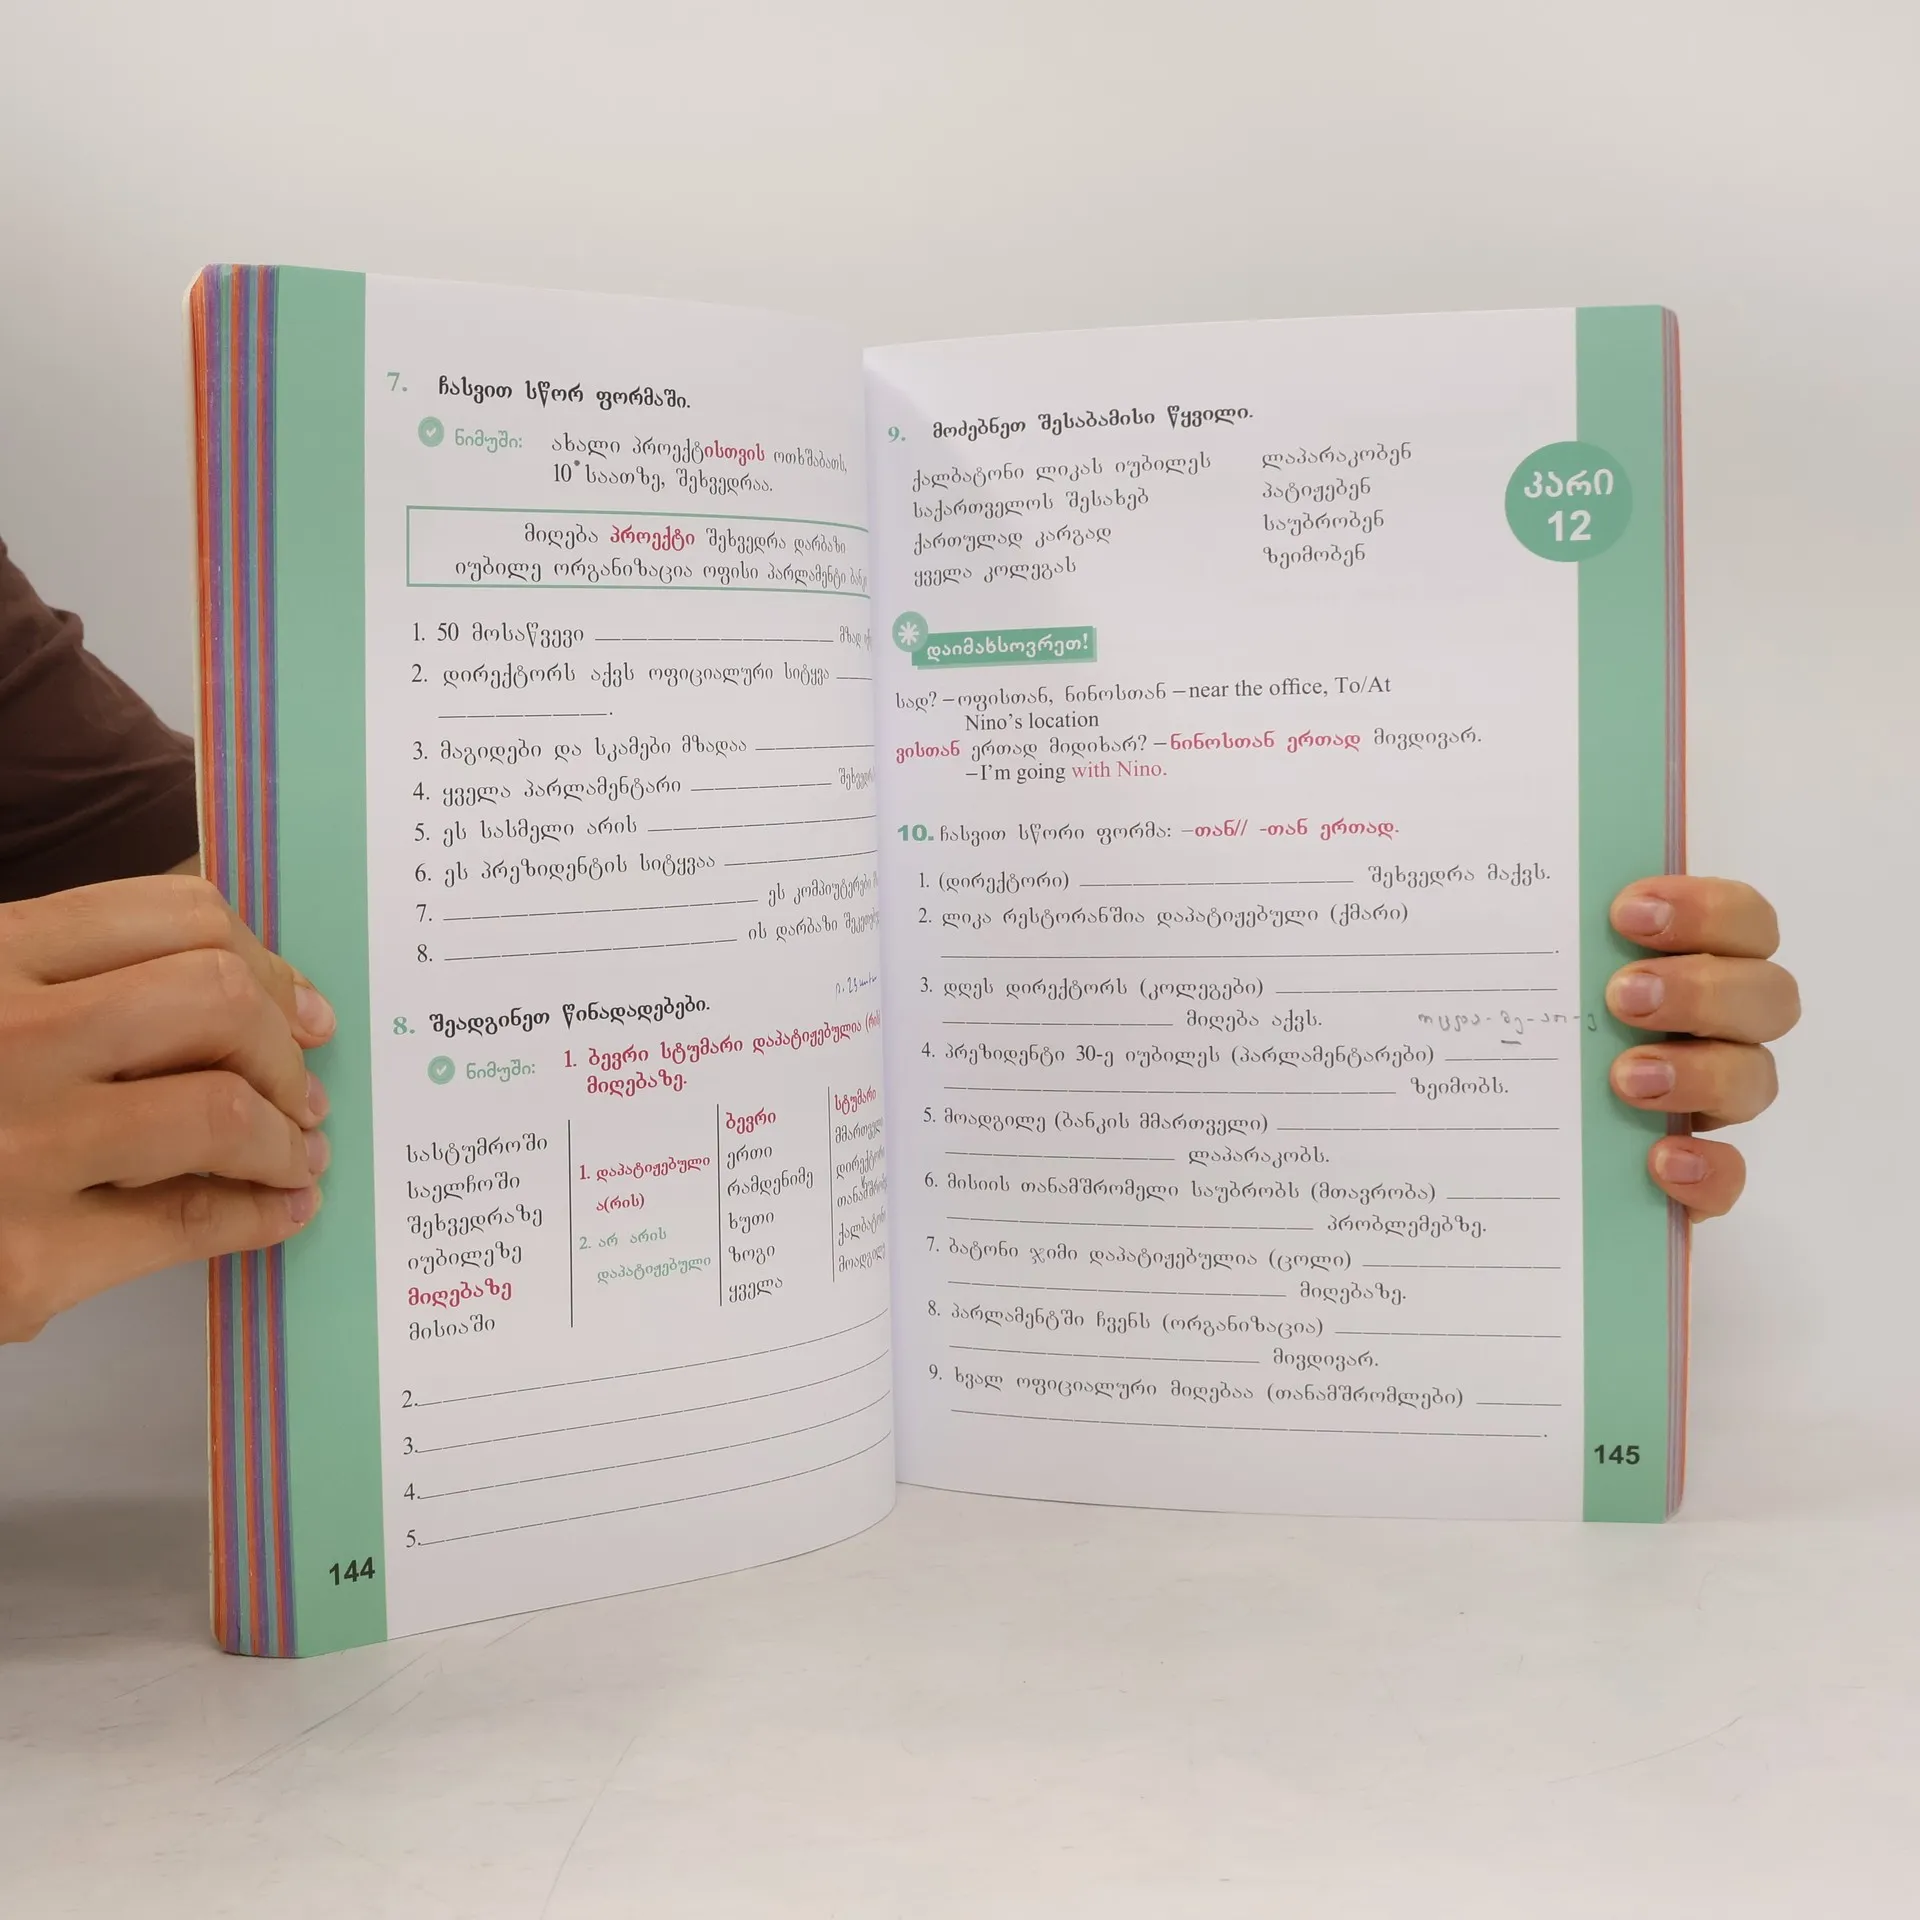 7. ჩასვით სწორ ფორმაში.
ნიმუში: ახალი პროექტისთვის ოთხშაბათს,
10 საათზე, შეხვედრაა.
მიღება პროექტი შეხვედრა დარბაზი
იუბილე ორგანიზაცია ოფისი პარლამენტი
1. 50 მოსაწვევი ____________ მზად
2. დირექტორს აქვს ოფიციალური სიტყვა ____
____________.
3. მაგიდები და სკამები მზადაა ____________
4. ყველა პარლამენტარი ____________
5. ეს სასმელი არის ____________
6. ეს პრეზიდენტის სიტყვაა ____________
7. ____________ ეს კომპიუტერები
8. ____________ ის დარბაზი
8. შეადგინეთ წინადადებები.
ნიმუში: 1. ბევრი სტუმარი დაპატიჟებულია
მიღებაზე.
სასტუმროში
საელჩოში
შეხვედრაზე
იუბილეზე
მიღებაზე
მისიაში
1. დაპატიჟებული
ა(რის)
2. არ არის
დაპატიჟებული
ბევრი
ერთი
რამდენიმე
ხუთი
ზოგი
ყველა
სტუმარი
მმართველი
დირექტორი
ქალბატონი
მოადგილე
2. ____________
3. ____________
4. ____________
5. ____________
144
9. მოძებნეთ შესაბამისი წყვილი.
ქალბატონი ლიკას იუბილეს
საქართველოს შესახებ
ქართულად კარგად
ყველა კოლეგას
ლაპარაკობენ
პატიჟებენ
საუბრობენ
ზეიმობენ
კარი
12
დაიმახსოვრეთ!
სად? – ოფისთან, ნინოსთან – near the office, To/At
Nino's location
ვისთან ერთად მიდიხარ? – ნინოსთან ერთად მივდივარ.
– I'm going with Nino.
10. ჩასვით სწორი ფორმა: –თან// -თან ერთად.
1. (დირექტორი) ____________ შეხვედრა მაქვს.
2. ლიკა რესტორანშია დაპატიჟებული (ქმარი)
____________.
3. დღეს დირექტორს (კოლეგები) ____________
____________ მიღება აქვს.
4. პრეზიდენტი 30-ე იუბილეს (პარლამენტარები) ____________
____________ ზეიმობს.
5. მოადგილე (ბანკის მმართველი) ____________
____________ ლაპარაკობს.
6. მისიის თანამშრომელი საუბრობს (მთავრობა) ____________
____________ პრობლემებზე.
7. ბატონი ჯიმი დაპატიჟებულია (ცოლი) ____________
____________ მიღებაზე.
8. პარლამენტში ჩვენს (ორგანიზაცია) ____________
____________ მივდივარ.
9. ხვალ ოფიციალური მიღებაა (თანამშრომლები) ____________
____________.
145